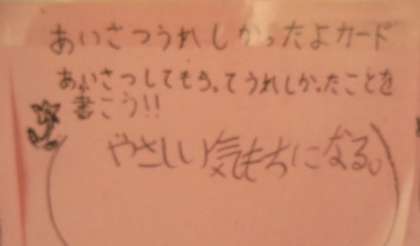 あいさつうれしかったよカード
あいさつしてもらってうれしかったことを
書こう!!
やさしい気もちになる。